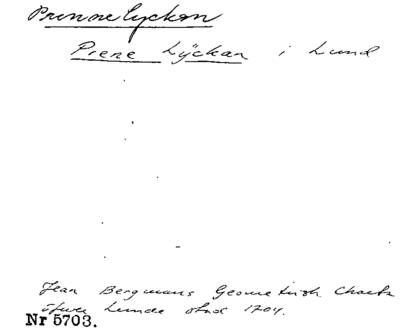 Prennelyckan
Pirene Lÿckan i Lund
Jean Bergmans Geometrisk Charta
öfwer Lunde stad 1704.
Nr 5703.